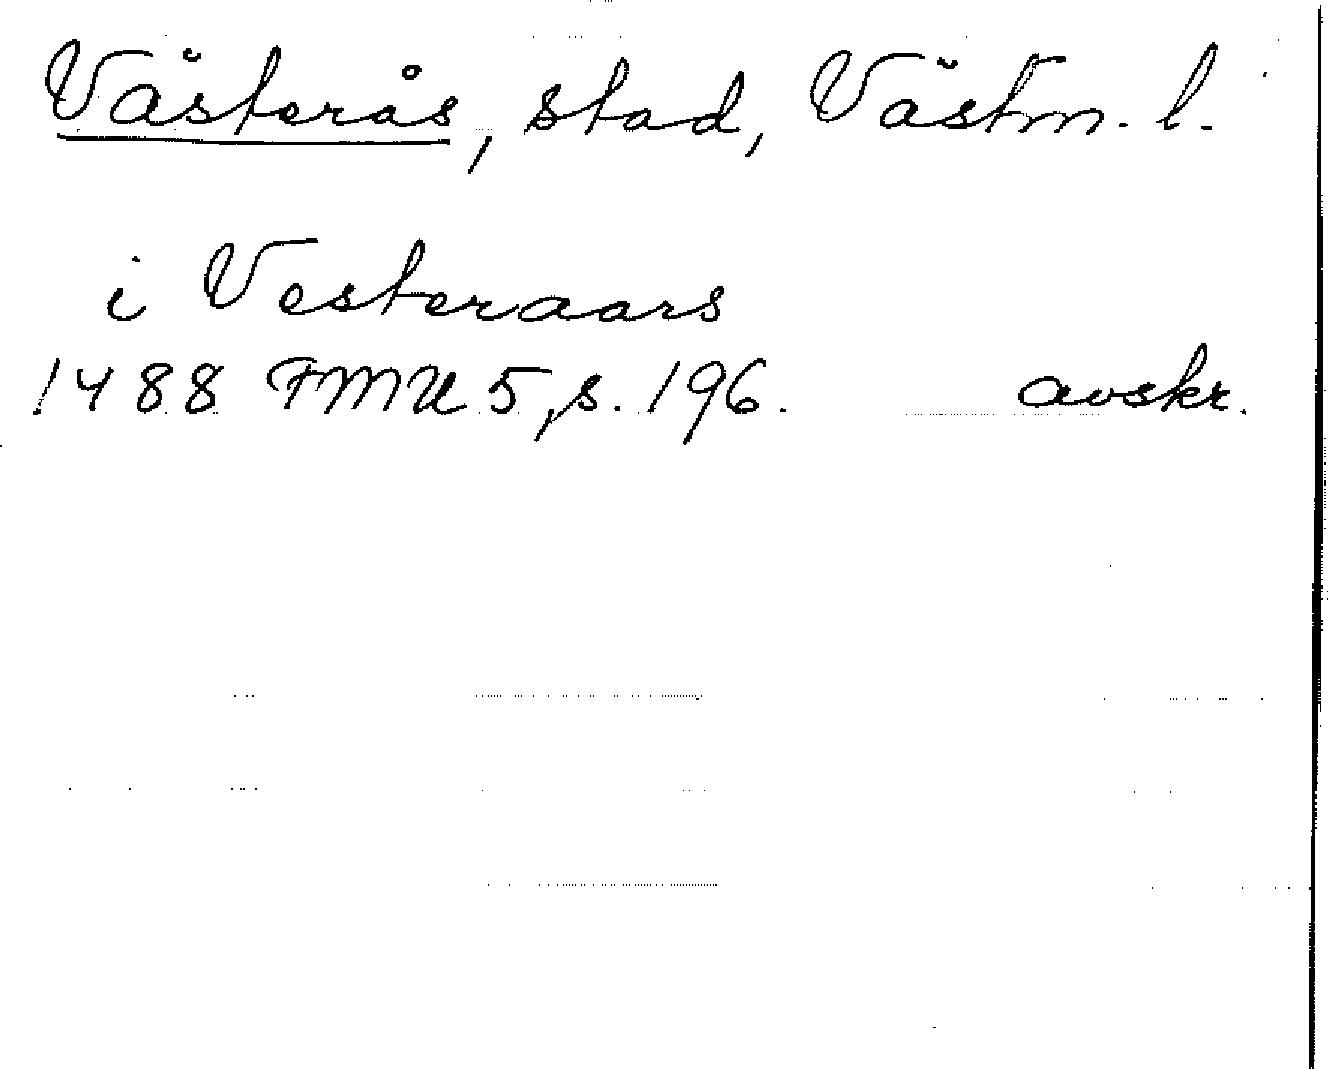 Västerås, stad, Västm. l.
i Vesteraars
1488 FMU 5, s. 196. avskr.